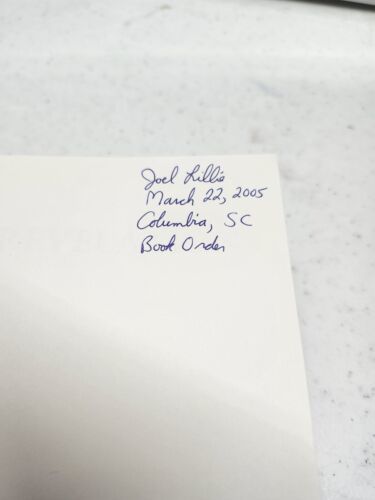 Joel Lillie
March 22, 2005
Columbia, SC
Book Order